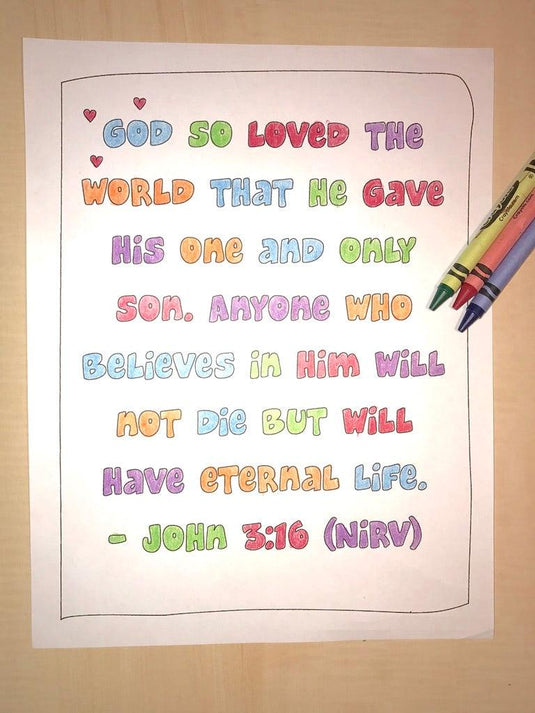 God so Loved the
world that He gave
His one and only
Son. Anyone who
believes in Him will
not die but will
have eternal life.
- John 3:16 (NIRV)